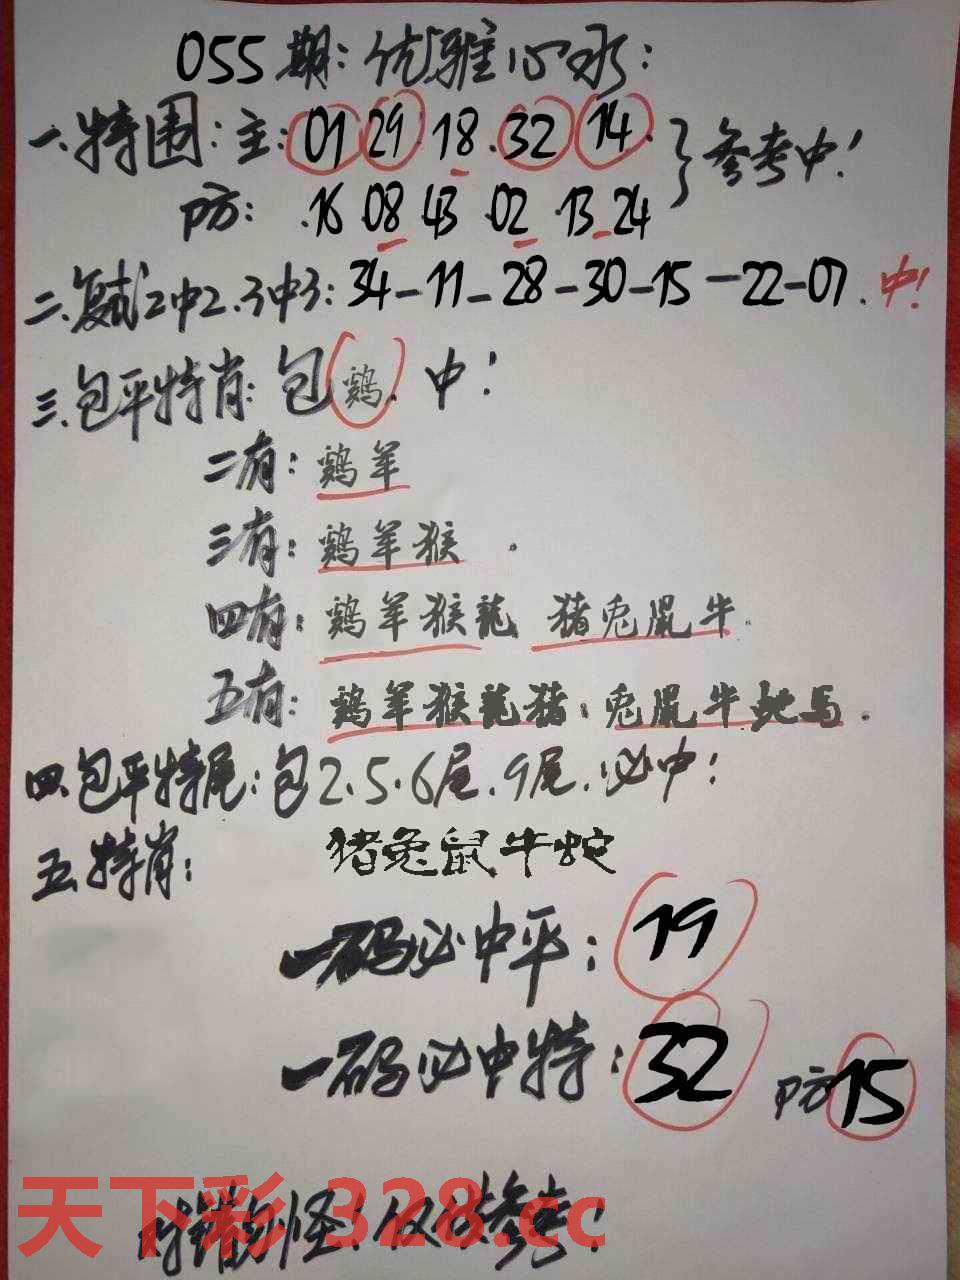 055期:优雅心水:
一.特围:主:01 29 18.32 14.}参考中!
防:.16.08.43.02.13.24
二.复式2中2.3中3:34-11-28-30-15-22-07.中!
三.包平特肖:包鸡.中!
二有:鸡羊
三有:鸡羊猴.
四有:鸡羊猴龍 猪兔鼠牛.
五有:鸡羊猴龍猪:兔鼠牛蛇马.
四.包平特尾:包2.5.6尾.9尾.必中!
五.特肖:猪兔鼠牛蛇
一码必中平:19
一码必中特:32 防15
对错勿怪!仅供参考!
天下彩 328.cc